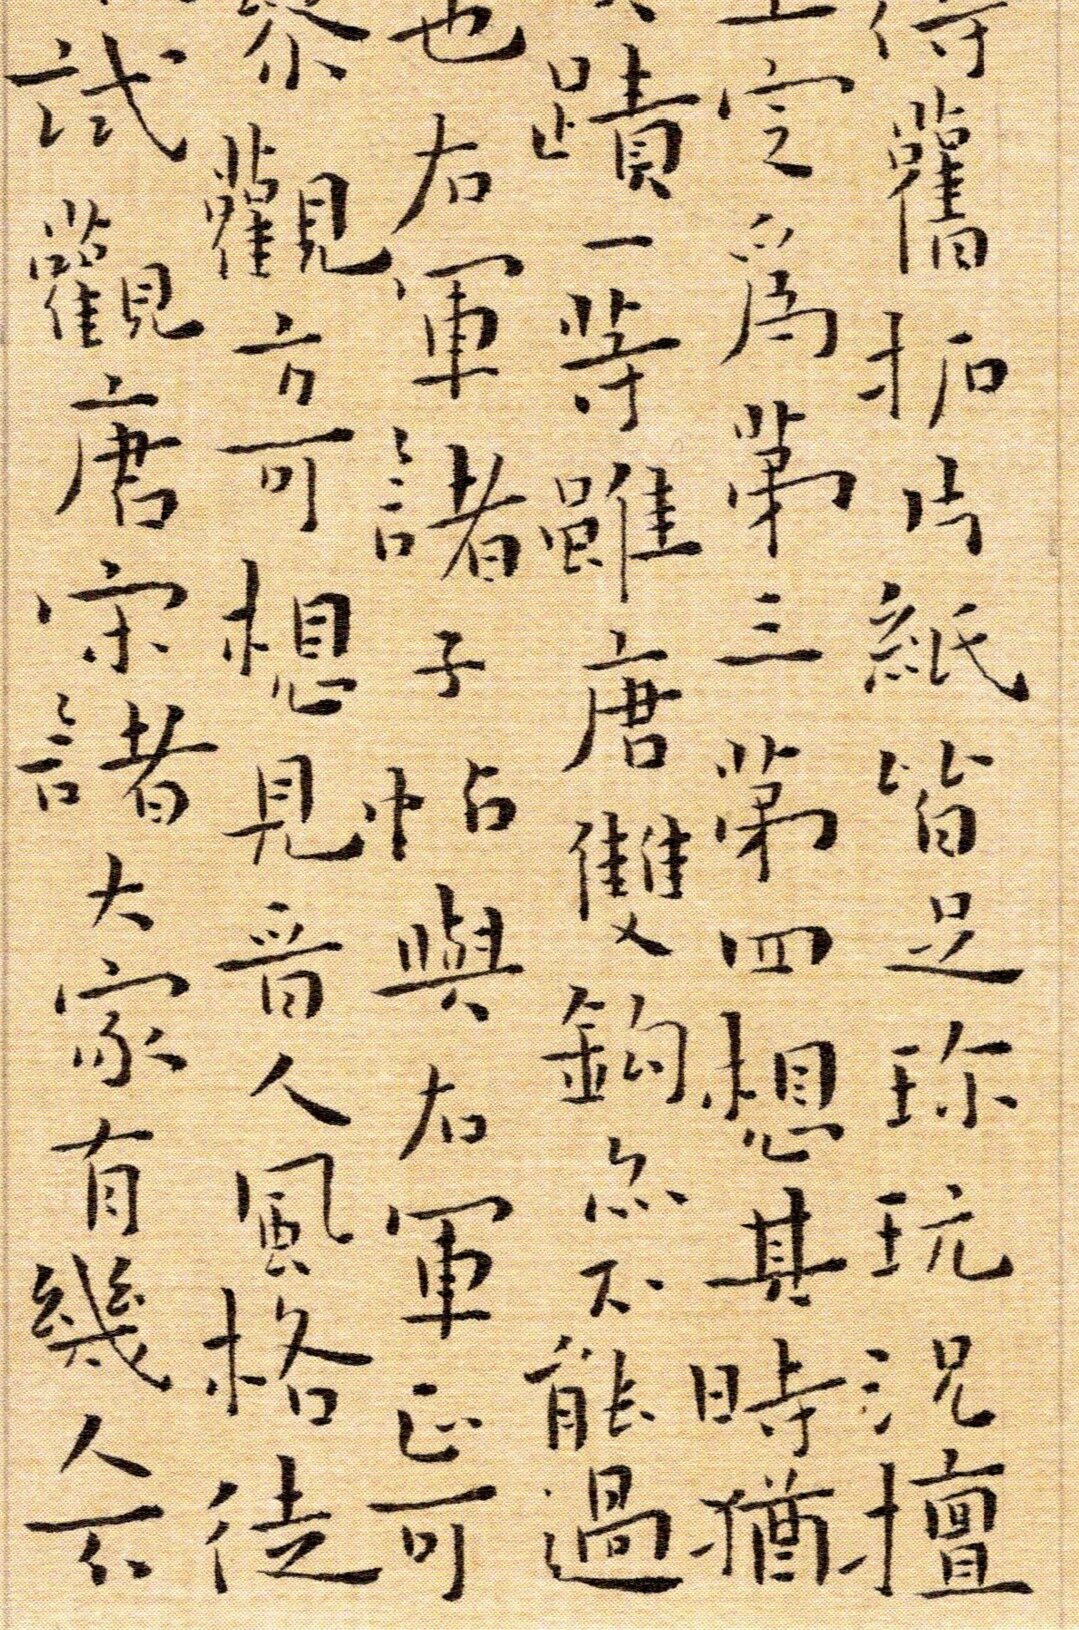 舊拓片紙皆足珍玩況擅
定爲第三第四想其時猶
蹟一等雖唐雙鈎亦不能過
也右軍諸子帖與右軍正可
觀方可想見晉人風格徒
試觀唐宋諸大家有幾人不